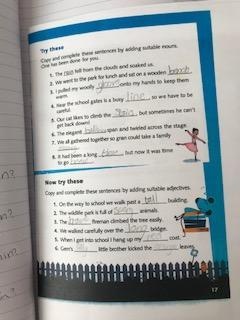 Try these
Copy and complete these sentences by adding suitable nouns.
One has been done for you.
1. The rain fell from the clouds and soaked us.
2. We went to the park for lunch and sat on a wooden
3. I pulled my woolly gloves onto my hands to keep them
warm.
4. Near the school gates is a busy line, so we have to be
careful.
5. Our cat likes to climb the, but sometimes he can't
get back down!
6. The elegant span and twirled across the stage.
7. We all gathered together so gran could take a family
8. It had been a long, but now it was time
to go
Now try these
Copy and complete these sentences by adding suitable adjectives.
1. On the way to school we walk past a tall building.
2. The wildlife park is full of animals.
3. The fireman climbed the tree easily.
4. We walked carefully over the long bridge.
5. When I get into school I hang up my red coat.
6. Gem's little brother kicked the leaves.
17